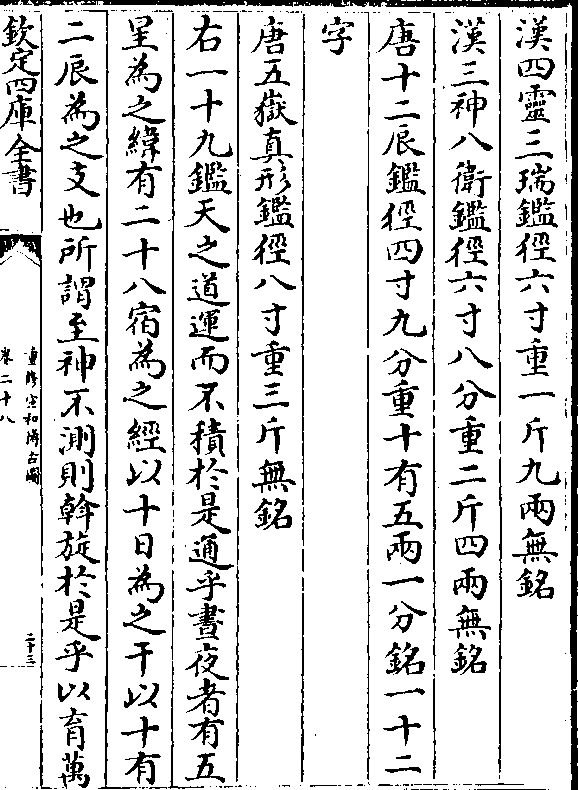 漢四靈三瑞鑑徑六寸重一斤九兩無銘
漢三神八衛鑑徑六寸八分重二斤四兩無銘
唐十二辰鑑徑四寸九分重十有五兩一分銘一十二
字
唐五嶽真形鑑徑八寸重三斤無銘
右一十九鑑天之道運而不積於是通乎晝夜者有五
星為之緯有二十八宿為之經以十日為之干以十有
二辰為之支也所謂至神不測則斡旋於是乎以育萬
欽定四庫全書
重修宣和博古圖
卷二十八
二十三